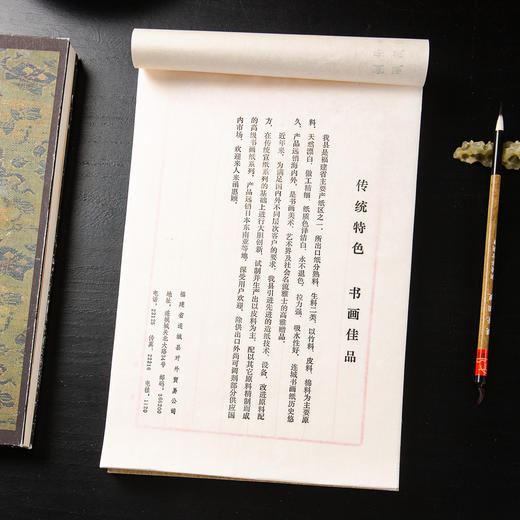 传统特色 书画佳品
我县是福建省主要产纸区之一,所出口纸分熟料、生料二类,以竹料、皮料、棉料为主要原
料,天然漂白,做工精细,纸质色泽洁白,永不退色,拉力强,吸水性好,连城书画纸历史悠
久,产品远销海内外,是书画美术、艺术界及社会名流雅士的高雅赠品。
近年来,为满足国内外不同层次客户的要求,我县引进先进的造纸技术、设备,改进原料配
方,在传统宣纸系列的基础上进行大胆创新,试制并生产出以皮料为主,配以其它原料精制而成
的高级书画纸系列,产品远销日本东南亚等地,深受用户欢迎,除供出口外尚可调剂部分供应国
内市场,欢迎来人来函惠顾。
福建省连城县对外贸易公司
地址:连城城关北大路34号 邮码:366200
电话:22125 传真:22216 电挂:1129